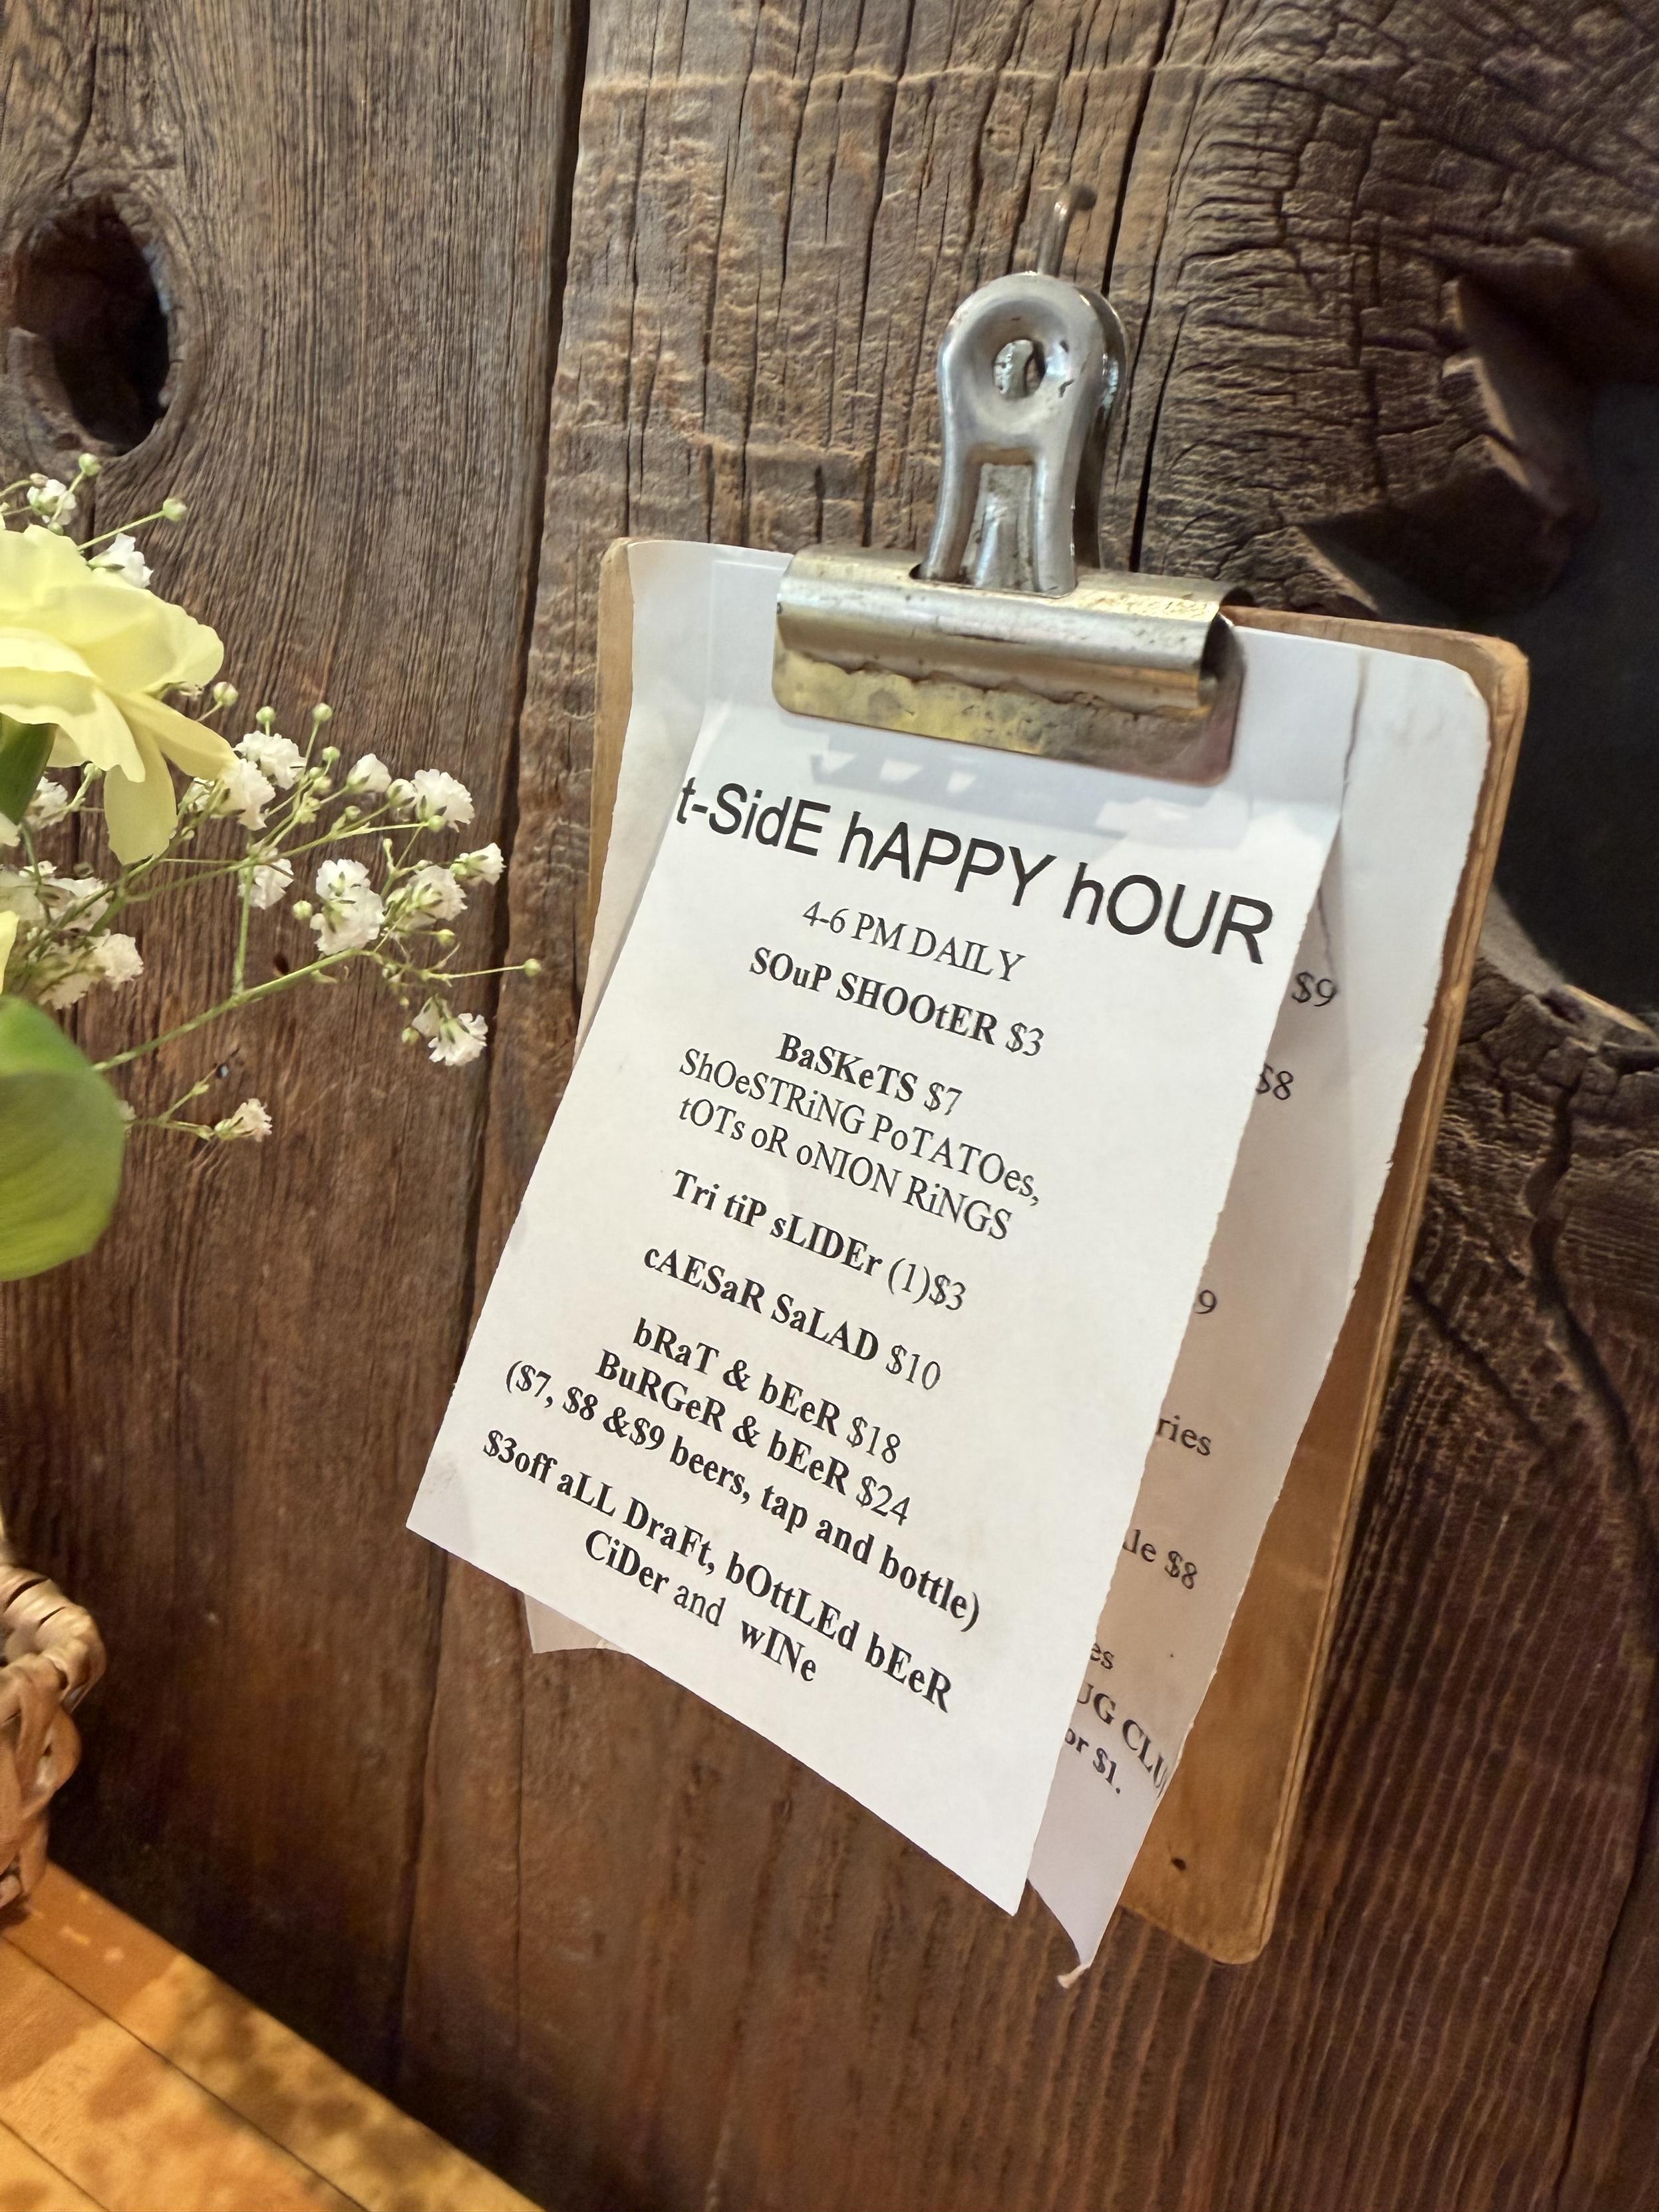 t-SidE hAPPY hOUR
4-6 PM DAILY
SOuP SHOOtER $3
BaSKeTS $7
ShOeSTRiNG PoTATOes,
tOTs oR oNION RiNGS
Tri tiP sLIDEr (1)$3
cAESaR SaLAD $10
bRaT & bEeR $18
BuRGeR & bEeR $24
($7, $8 &$9 beers, tap and bottle)
$3off aLL DraFt, bOttLEd bEeR
CiDer and wINe
$9
$8
9
ries
le $8
es
UG CLU
or $1.